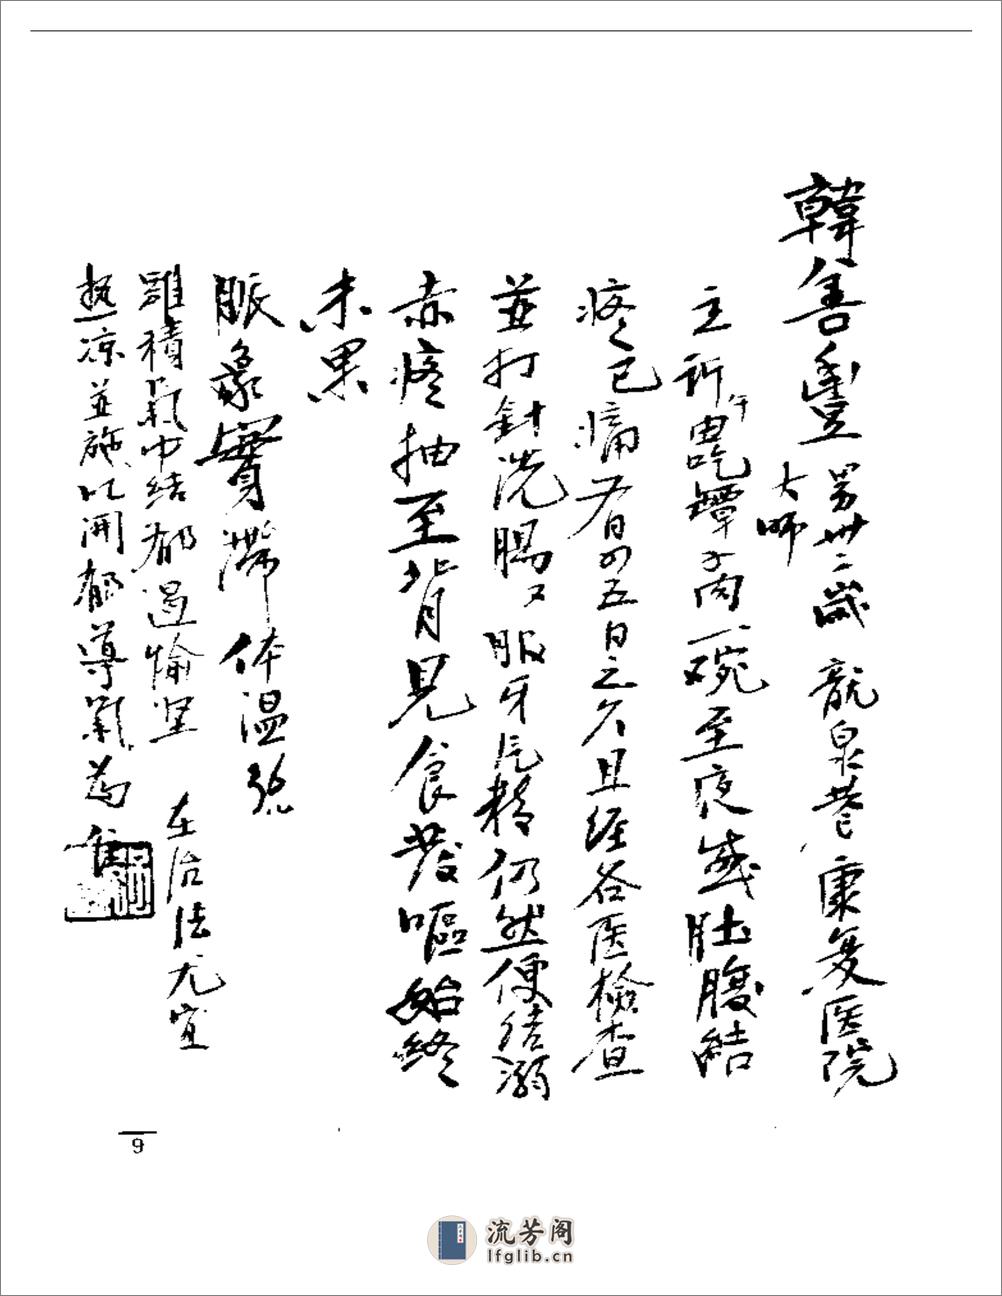 韓善豐 男卅二歲 龍泉巷康复医院
大师
主訴由午吃罈子肉一碗至夜感肚腹結
疼已痛有四五日之久且经各医檢查
並打針洗腸又服牙片精仍然便结溺
赤疼抽至背見食發嘔始終
未果
脈象實滞体温
雖積氣中结郁過愉 在治法尤宜
热凉並施以開郁導氣為佳
9
流芳阁
lfglib.cn